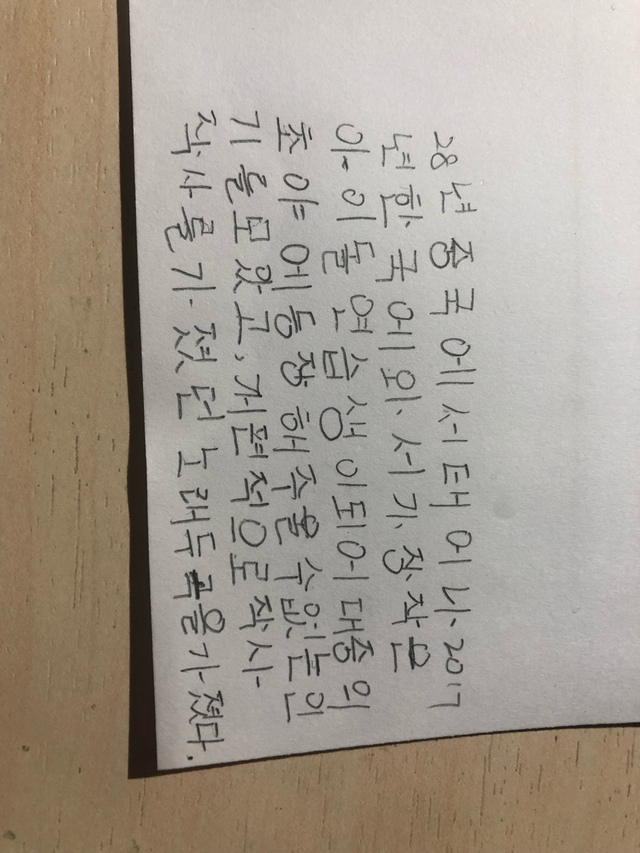 28년 중국에서 태어나 2017
년 한국에 와서 가장 작은
아이돌 연습생이 되어 대중의
초야에 등장해 주울 수 없는 인
기를 모았고, 개편적으로 작사
작사를 가졌던 노래 두 곡을 가졌다.